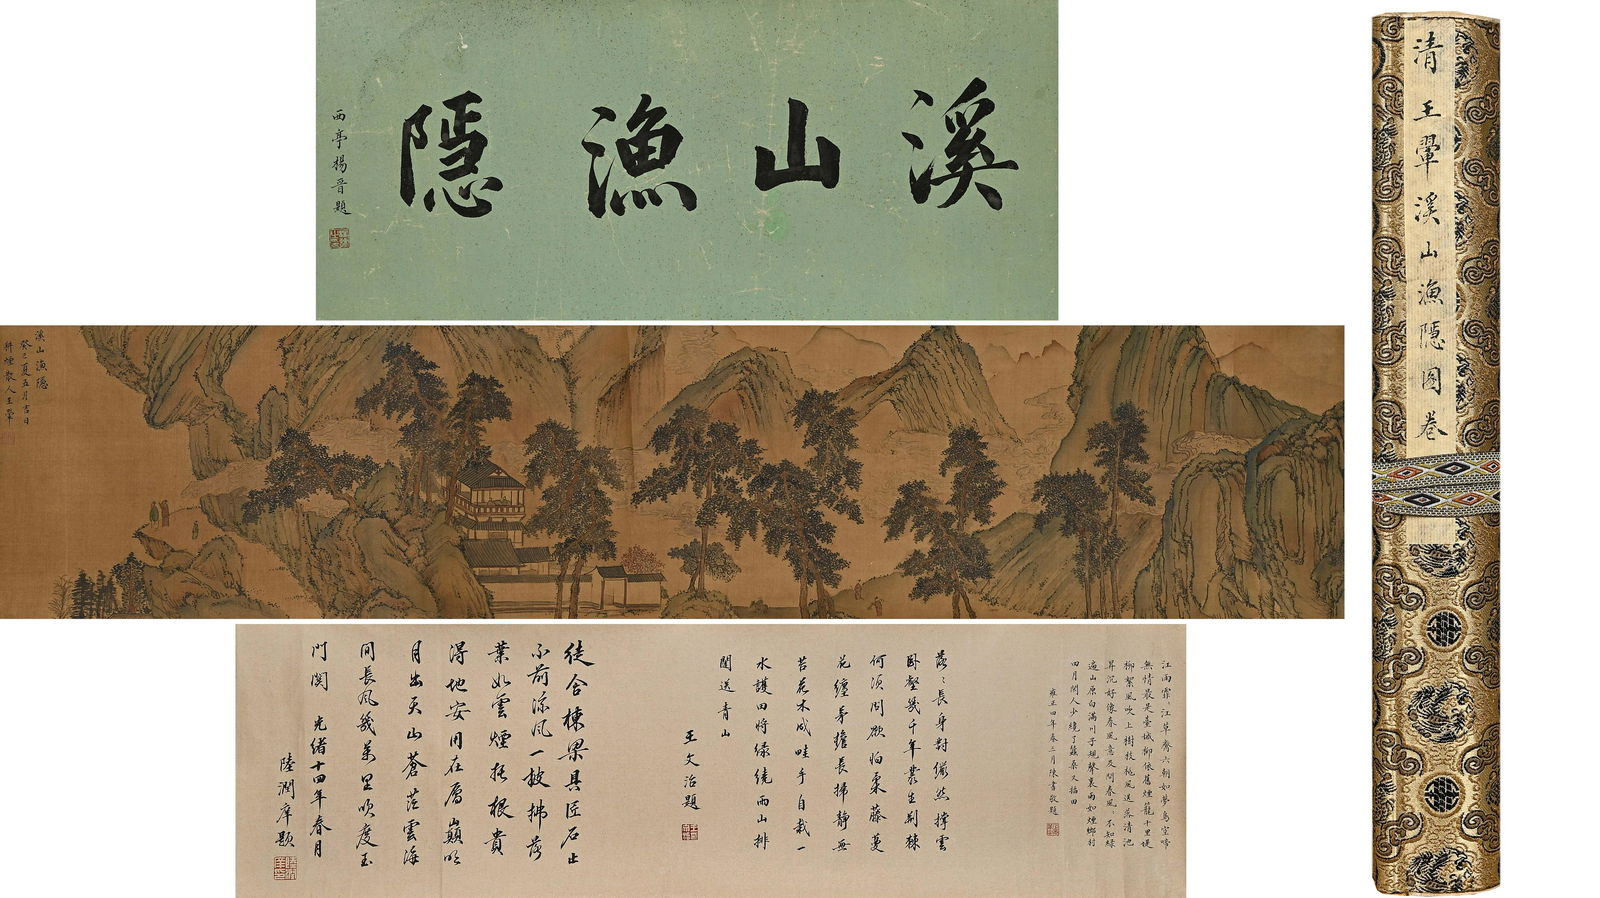 溪山漁隱
西亭楊晉題
溪山漁隱
癸巳夏五月日
耕煙散人王翬
江雨霏〻江草齊六朝如夢鳥空啼
無情最是臺城柳依舊煙籠十里堤
柳絮風吹上樹枝桃風送落清池
昇沉好像春風意及問春風〻不知綠
遍山原白滿川子規聲裏雨如煙鄉村
四月閒人少纔了蠶桑又插田
雍正四年春二月陳書敬題
落〻長身對儼然撐雲
臥壑幾千年叢生荆棘
何須問欲怕柔藤蔓
花纏茅擔長掃靜無
苔花木成畦手自栽一
水護田將綠繞兩山排
闥送青山
王文治題
徒含棟梁具匠石止
不前涼風一披拂落
葉如雲煙托根貴
得地安用在層巔明
月出天山蒼茫雲海
間長風幾萬里吹度玉
門関 光緒十四年春月
陸潤庠題
清王翬溪山漁隱圖卷